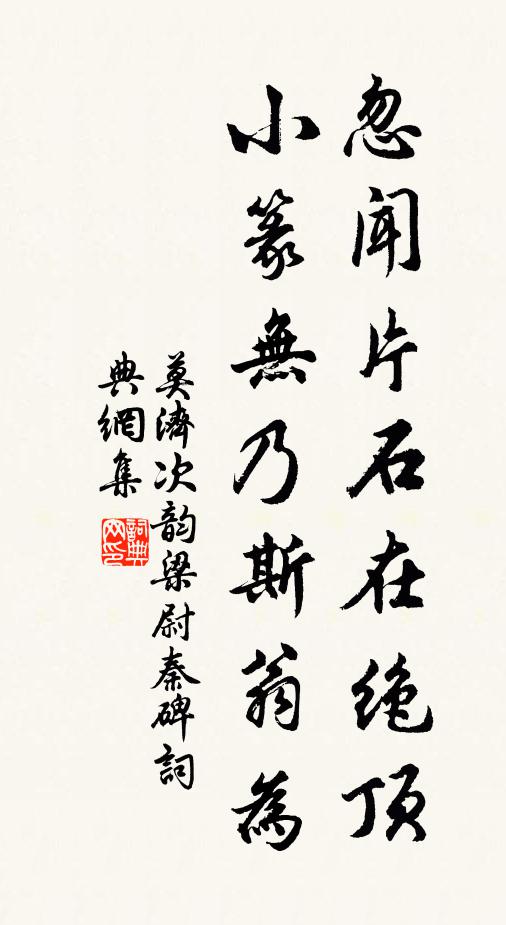 忽闻片石在绝顶
小篆無乃斯翁為
莫濟次韵梁尉秦碑詞
典網集
詞典网印